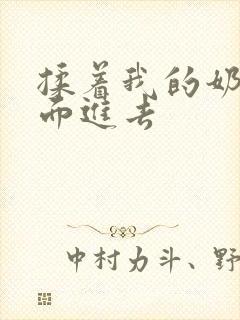 揉着我的奶
而進去
中村力斗、野